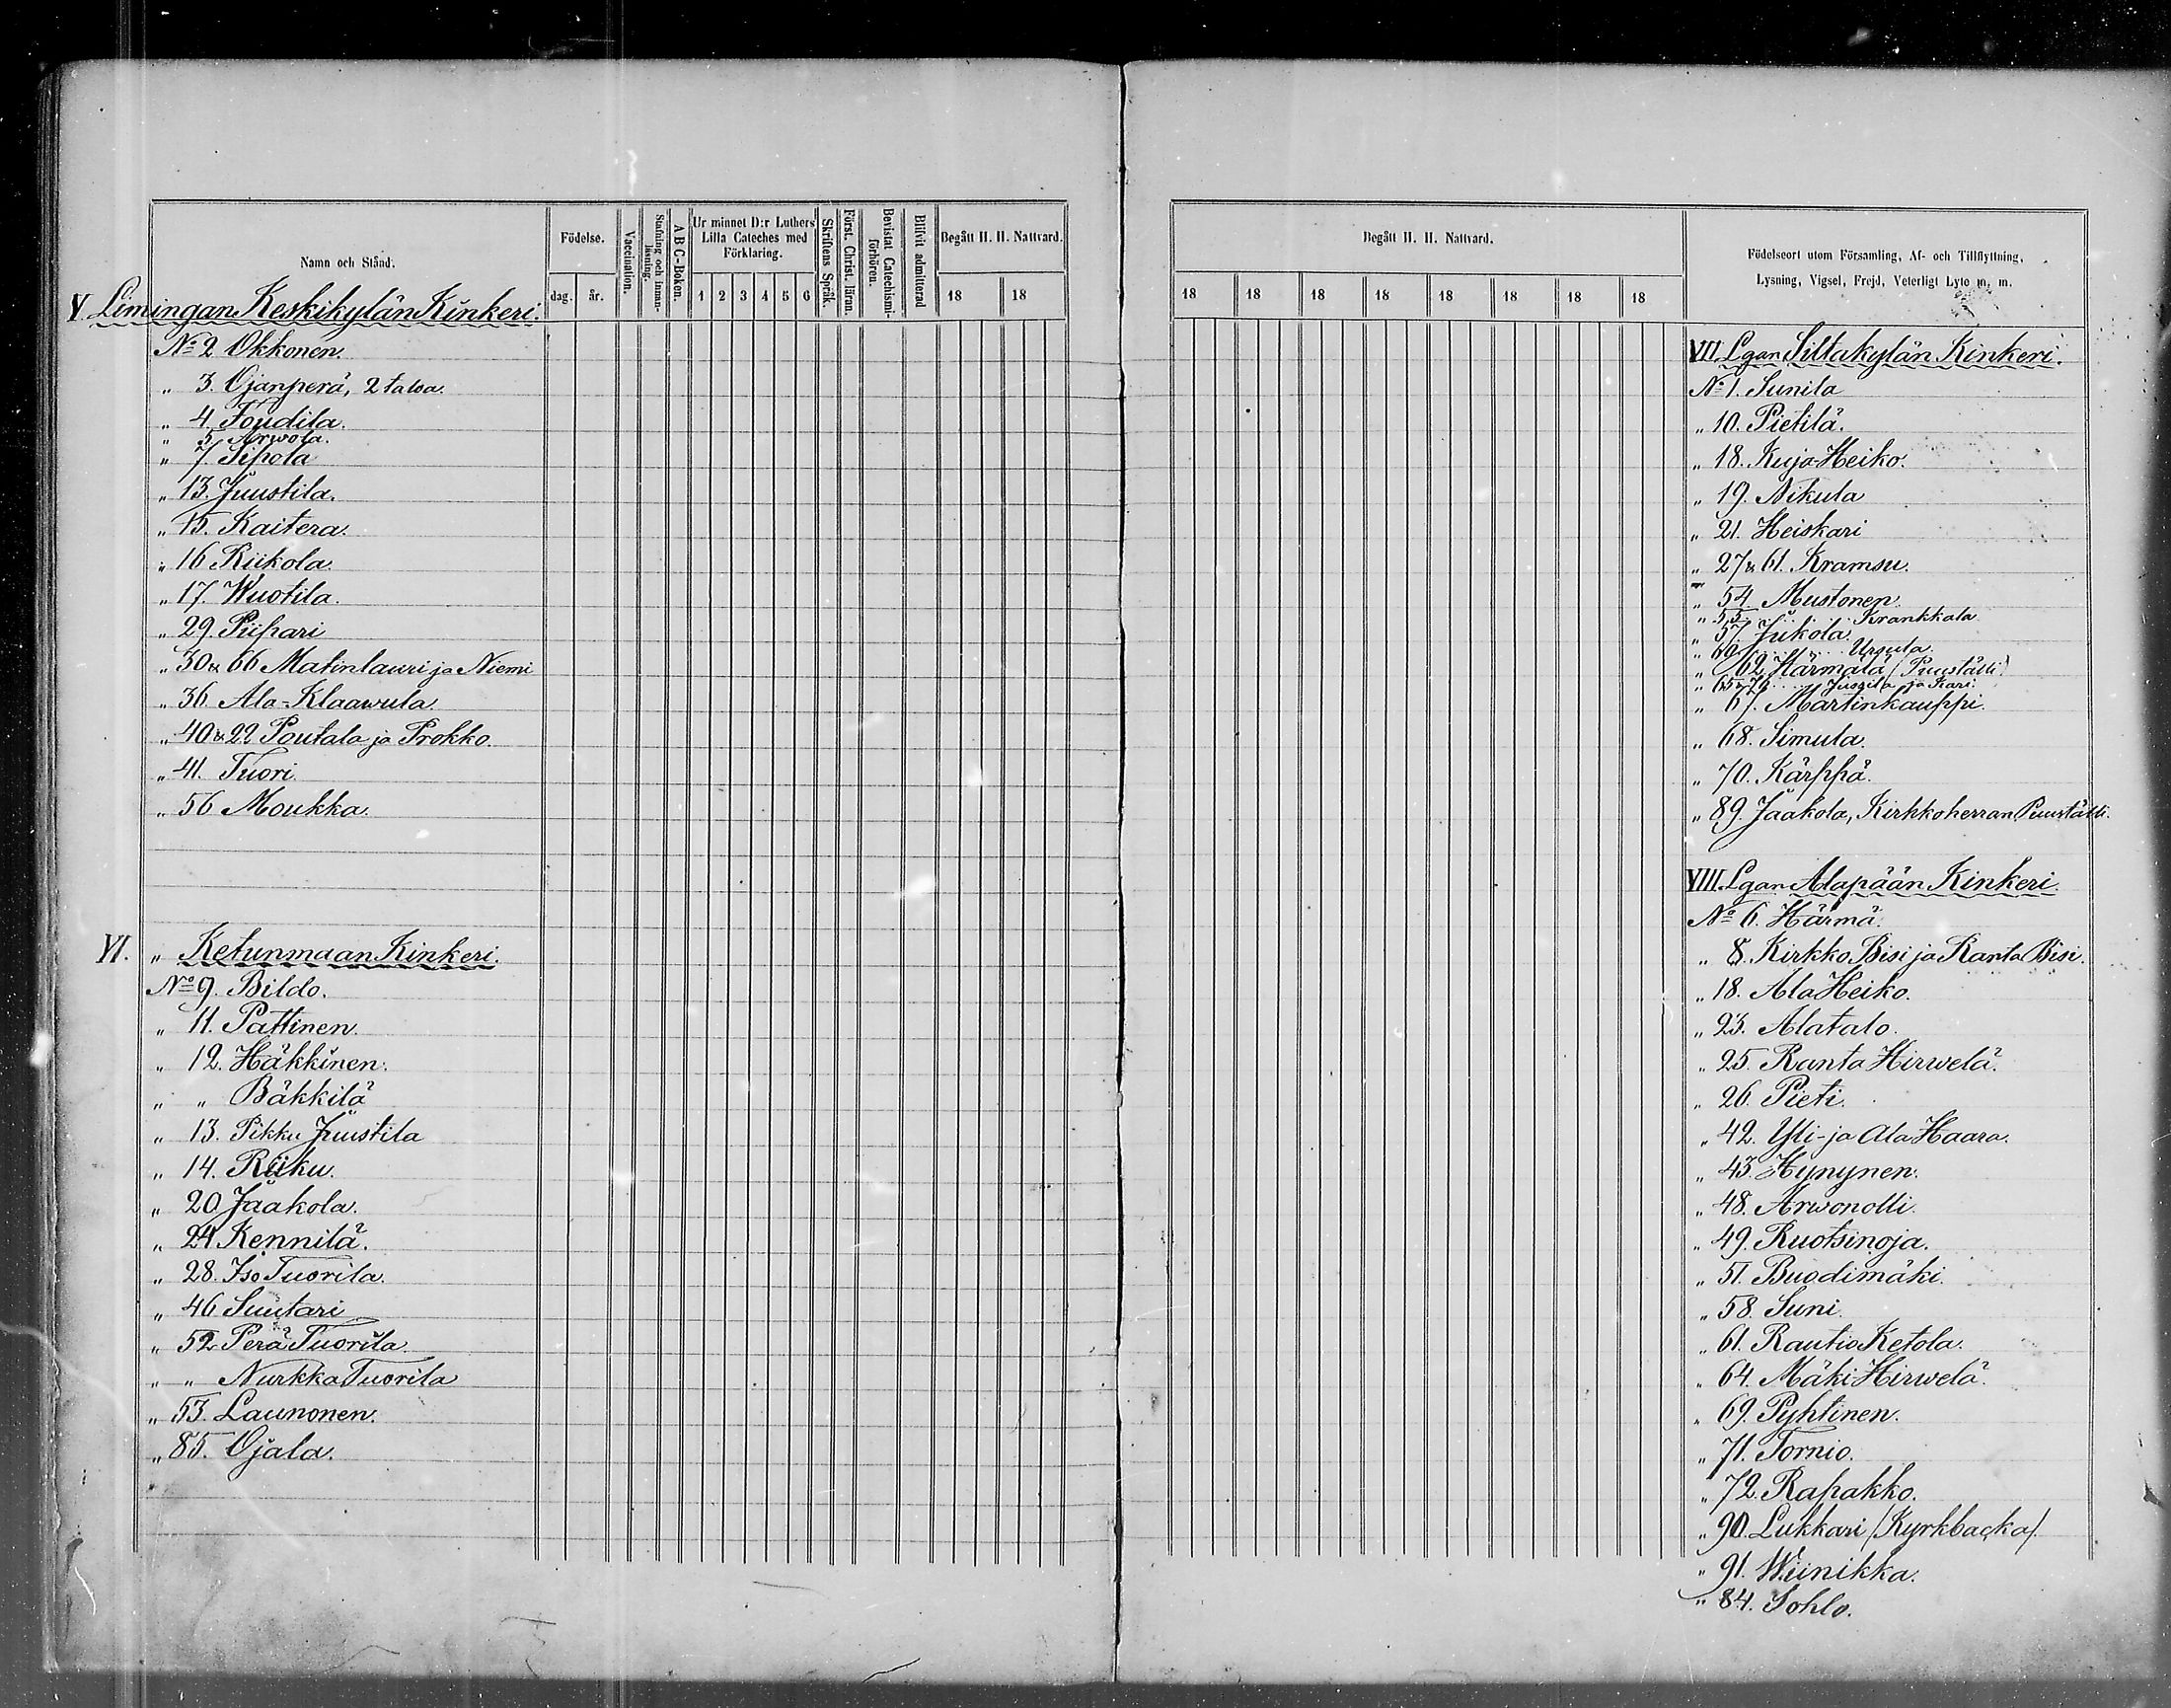 Namn och Stånd.
Födelse.
dag.
år.
Vaccination.
Stafning och innan-läsning.
A B C-Boken.
Ur minnet D:r Luthers
Lilla Cateches med
Förklaring.
1 2 3 4 5 6
Skriftens Språk.
Först. Christ. läran.
Bevistat Catechismi-förhören.
Blifvit admitterad
Begått H. H. Nattvard.
18 18
V Limingan Keskikylän Kinkeri.
No 2 Okkonen.
" 3. Ojanperä, 2 taloa.
" 4. Foudila.
" 5. Arwola.
" 7. Sipola
" 13. Juustila.
" 15. Kaitera.
" 16 Riikola.
" 17. Wuotila.
" 29. Piipari
" 30 & 66 Matinlauri ja Niemi
" 36 Ala-Klaawula
" 40 & 22 Poutala ja Prokko.
" 41. Tuori.
" 56 Moukka.
VI. " Ketunmaan Kinkeri.
No 9. Bildo.
" 11. Pattinen.
" 12. Häkkinen.
" " Bäkkilä
" 13. Pikku Juustila
" 14. Riiku.
" 20 Jaakola.
" 24 Kennilä.
" 28. Iso Tuorila.
" 46 Suutari
" 52 Perä Tuorila.
" " Nurkka Tuorila
" 53. Launonen.
" 85. Ojala.
Begått H. H. Nattvard.
18 18 18 18 18 18 18 18
Födelseort utom Församling, Af- och Tillflyttning,
Lysning, Vigsel, Frejd, Veterligt Lyte m. m.
VII Lgan Siltakylän Kinkeri.
No 1. Sunila
" 10. Pietilä.
" 18. Kuja-Heiko.
" 19. Nikula
" 21. Heiskari
" 27 & 61. Kramsu.
" 54. Mustonen.
" 55 Krankkala
" 57. Jukola.
" 60 Ursula.
" 62. Härmälä (Puuställi)
" 65 & 76 Jussila ja Kari.
" 67. Martinkauppi.
" 68. Simula.
" 70. Kärppä.
" 89. Jaakola, Kirkkoherran Puuställi.
VIII. Lgan Alapään Kinkeri.
No 6. Härmä.
" 8. Kirkko Bisi ja Ranta Bisi.
" 18. Ala Heiko.
" 23. Alatalo.
" 25. Ranta Hirwelä.
" 26. Pieti.
" 42. Yli- ja Ala Haara.
" 43. Hynynen.
" 48. Arwonolli.
" 49. Ruotsinoja.
" 51. Buodimäki.
" 58. Suni.
" 61. Rautio Ketola.
" 64. Mäki Hirwelä.
" 69. Pyhtinen.
" 71. Tornio.
" 72. Rapakko.
" 90. Lukkari (Kyrkbacka).
" 91. Wiinikka.
" 84. Sohlo.